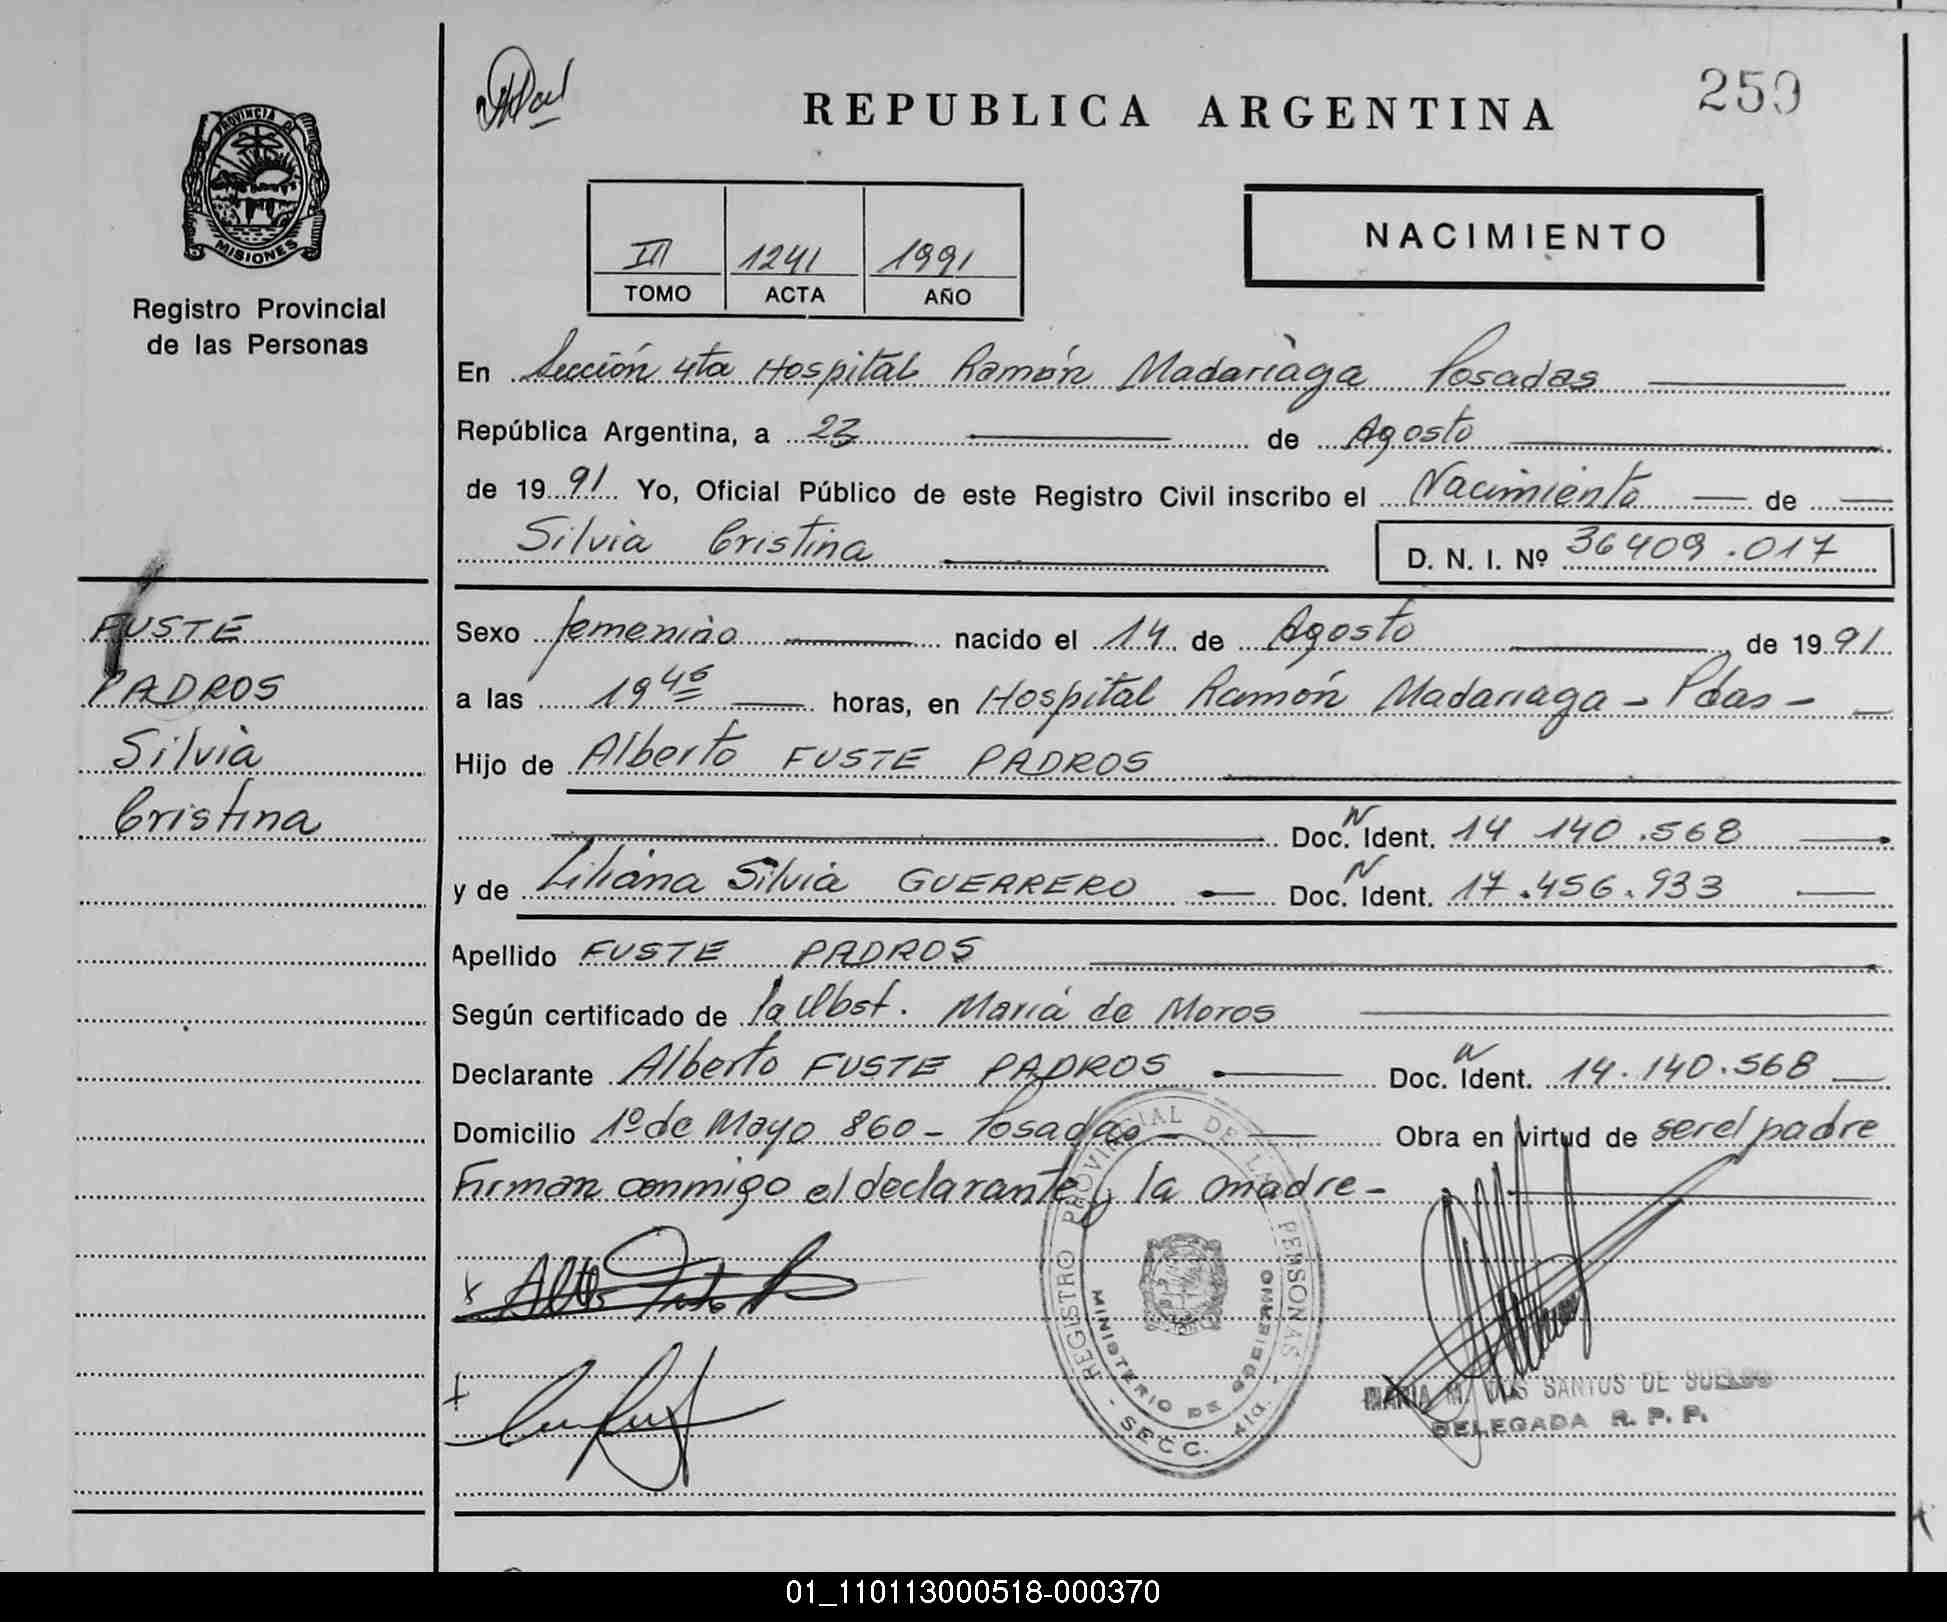 250
REPUBLICA ARGENTINA
PROVINCIA DE
MISIONES
Registro Provincial
de las Personas
III 1241 1991
TOMO ACTA AÑO
NACIMIENTO
En Sección 4ta Hospital Ramón Madariaga Posadas
República Argentina, a 23 de Agosto
de 1991 Yo, Oficial Público de este Registro Civil inscribo el Nacimiento de
Silvia Cristina D. N. I. Nº 36409.017
FUSTE
PADROS
Silvia
Cristina
Sexo femenino nacido el 14 de Agosto de 1991
a las 19 45 horas, en Hospital Ramón Madariaga - Pdas -
Hijo de Alberto FUSTE PADROS
Doc. N Ident. 14 140.568
y de Liliana Silvia GUERRERO Doc. N Ident. 17.456.933
Apellido FUSTE PADROS
Según certificado de la Obst. María de Moros
Declarante Alberto FUSTE PADROS Doc. N Ident. 14.140.568
Domicilio 1º de Mayo 860 - Posadas - Obra en virtud de ser el padre
Firman conmigo el declarante y la madre -
REGISTRO PROVINCIAL DE LAS PERSONAS
MINISTERIO DE GOBIERNO
- SECC. 4ta. -
MARIA M. DOS SANTOS DE
DELEGADA R. P. P.
01_110113000518-000370